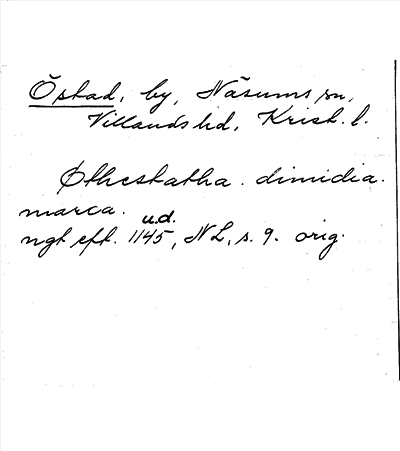 Östad, by, Näsums sn,
Villands hd, Krist. l.
Østhestatha. dimidia.
marca.
u.d.
ngt eft. 1145, NL, s. 9. orig.